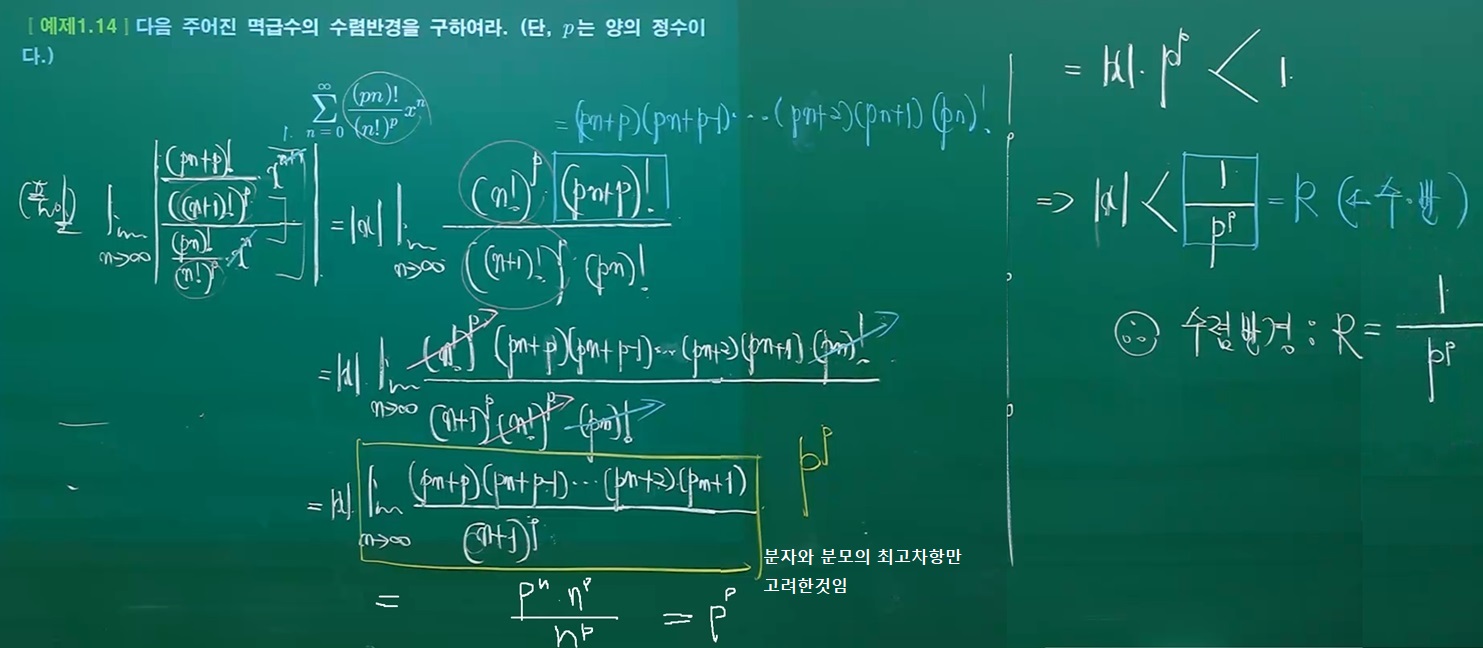 [예제1.14] 다음 주어진 멱급수의 수렴반경을 구하여라. (단, p는 양의 정수이
다.)
∑_{n=0}^{∞} (pn)!/(n!)^p x^n
= (pn+p)(pn+p-1)⋯(pn+2)(pn+1)(pn)!
(풀이) lim_{n→∞} | ((pn+p)!/((n+1)!)^p · x^{n+1}) / ((pn)!/(n!)^p · x^n) | = |x| lim_{n→∞} (n!)^p (pn+p)! / ((n+1)!)^p · (pn)!
= |x|. lim_{n→∞} (n!)^p (pn+p)(pn+p-1)⋯(pn+2)(pn+1)·(pn)! / (n+1)^p (n!)^p · (pn)!
= |x|. lim_{n→∞} (pn+p)(pn+p-1)⋯(pn+2)·(pn+1) / (n+1)^p
p^p
분자와 분모의 최고차항만
고려한것임
= p^n · n^p / n^p = p^p
= |x|. p^p < 1.
=> |x| < 1/p^p = R (←수.반)
∴ 수렴반경 : R = 1/p^p